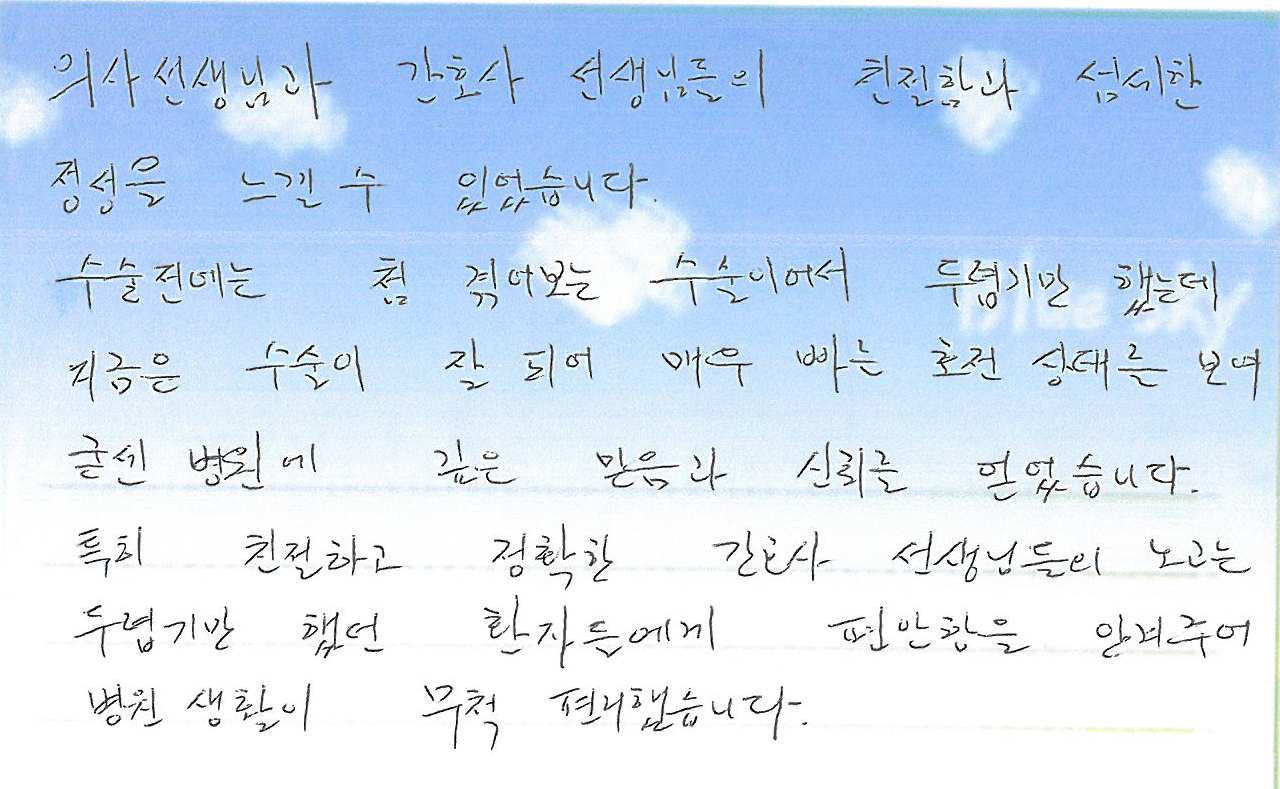 의사선생님과 간호사 선생님들의 친절함과 섬세한
정성을 느낄 수 있었습니다.
수술전에는 첨 겪어보는 수술이어서 두렵기만 했는데
지금은 수술이 잘 되어 매우 빠른 호전 상태를 보여
굳센 병원에 깊은 믿음과 신뢰를 얻었습니다.
특히 친절하고 정확한 간호사 선생님들의 노고는
두렵기만 했던 환자들에게 편안함을 안겨주어
병원 생활이 무척 편리했습니다.
Blue sky